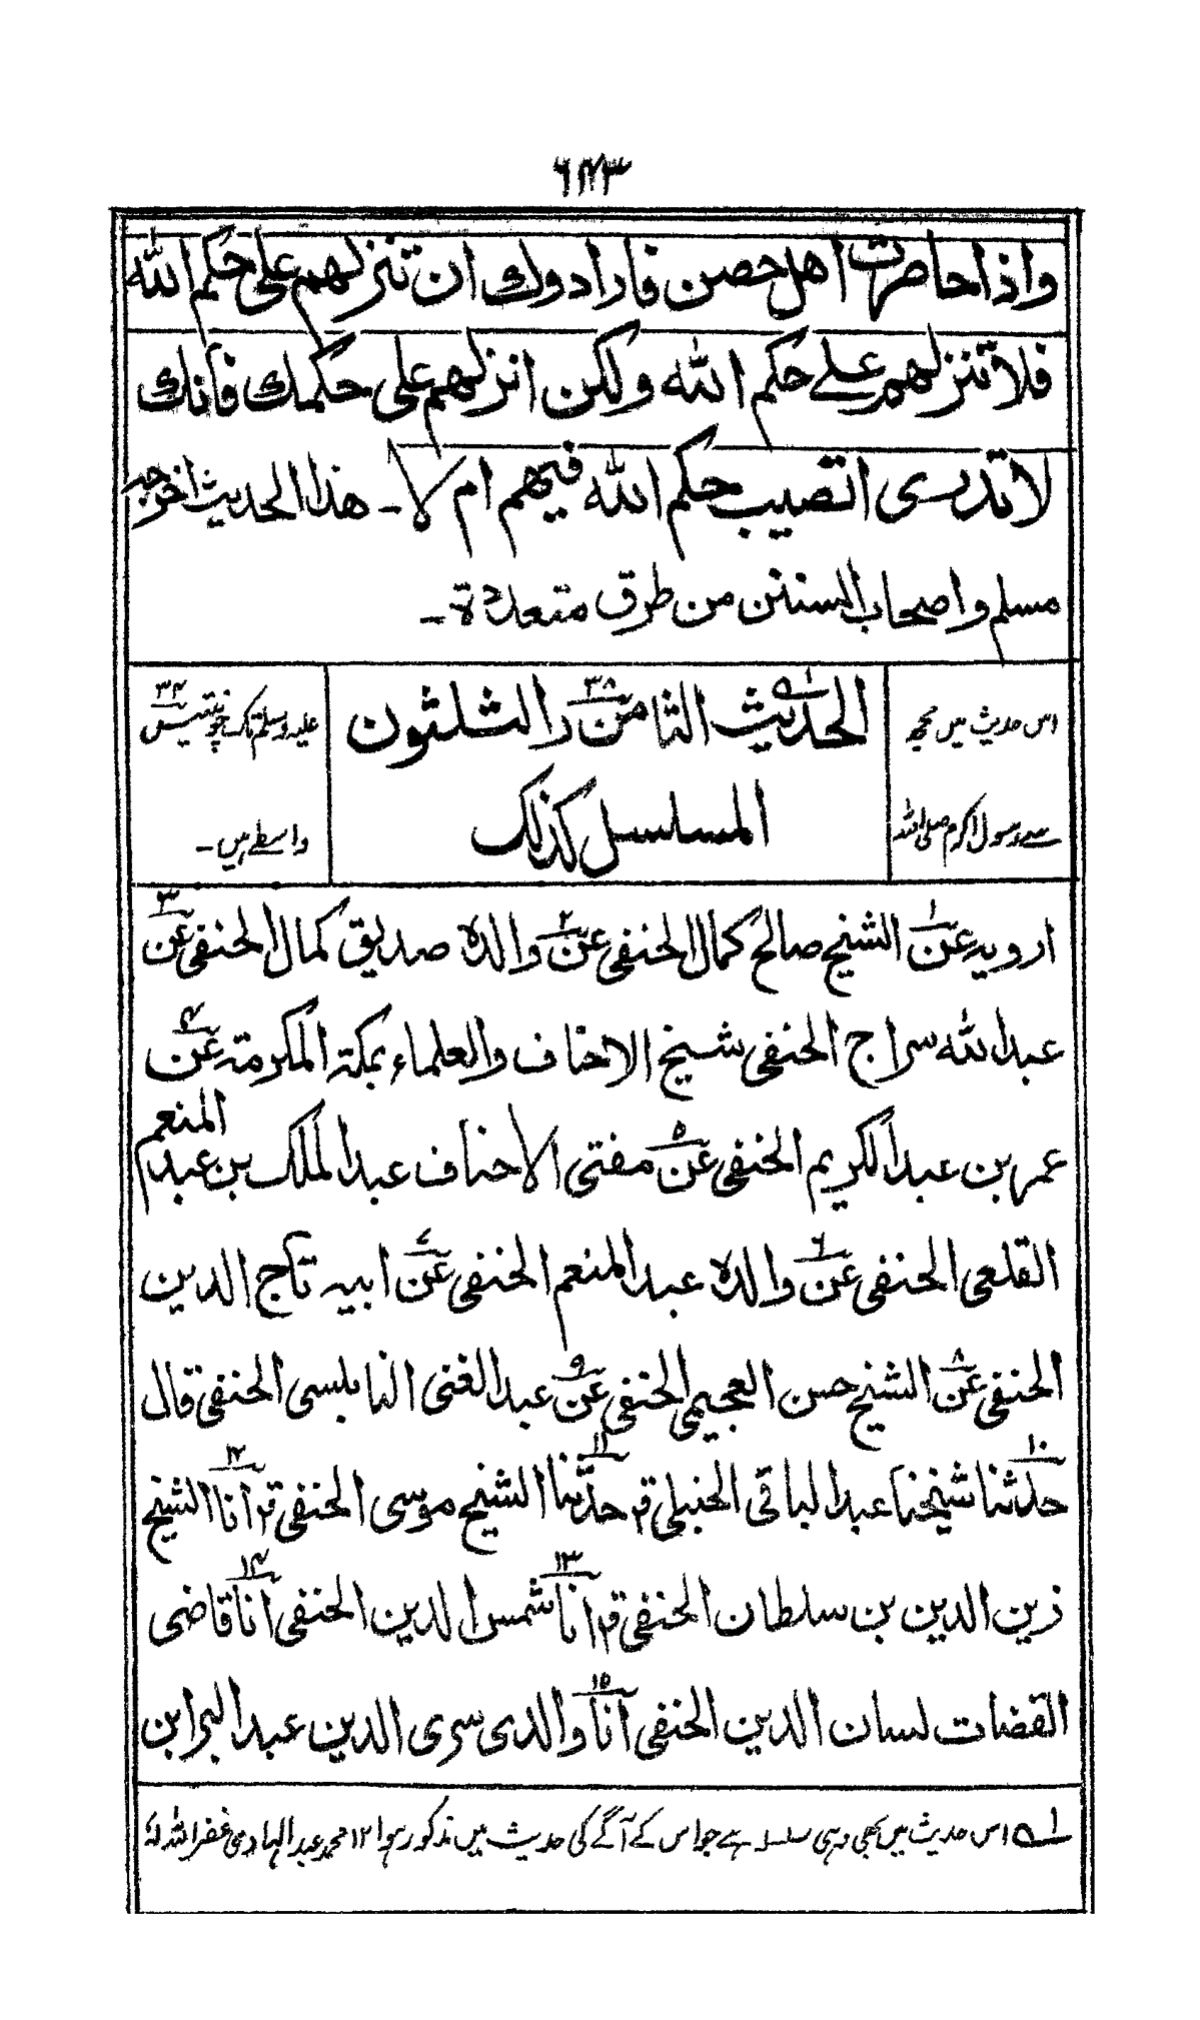 ۶۴۳
واذا حاصرت اهل حصن فارادوك ان تنزلهم على حكم الله
فلا تنزلهم على حكم الله ولكن انزلهم على حكمك فانك
لا تدرى اتصيب حكم الله فيهم ام لا ۔ هذا الحديث اخرجه
مسلم واصحاب السنن من طرق متعددة ۔
اس حدیث میں مجھ
سے رسول اکرم صلی اللہ
الحديث الثامن والثلثون ۳۸ ۱ه
المسلسل كذلك
علیہ وسلم تک چونتیس ۳۴
واسطے ہیں ۔
ارويه عن۱ الشيخ صالح كمال الحنفى عن۲ والده صديق كمال الحنفى عن۳
عبد الله سراج الحنفى شيخ الاحناف والعلماء بمكة المكرمة عن۴
عمر بن عبد الكريم الحنفى عن۵ مفتى الاحناف عبد الملك بن عبد المنعم
القلعى الحنفى عن۶ والده عبد المنعم الحنفى عن۷ ابيه تاج الدين
الحنفى عن۸ الشيخ حسن العجيمى الحنفى عن۹ عبد الغنى النابلسى الحنفى قال
حدثنا۱۰ شيخنا عبد الباقى الحنبلى قر حدثنا۱۱ الشيخ موسى الحنفى قر انا۱۲ الشيخ
زين الدين بن سلطان الحنفى قر انا۱۳ شمس الدين الحنفى انا۱۴ قاضى
القضات لسان الدين الحنفى انا۱۵ والدى سرى الدين عبد البر ابن
۱ه اس حدیث میں بھی وہی سلسلہ ہے جو اس کے آگے کی حدیث میں مذکور ہوا ۱۲ محمد عبد الہادی غفر اللہ لہ